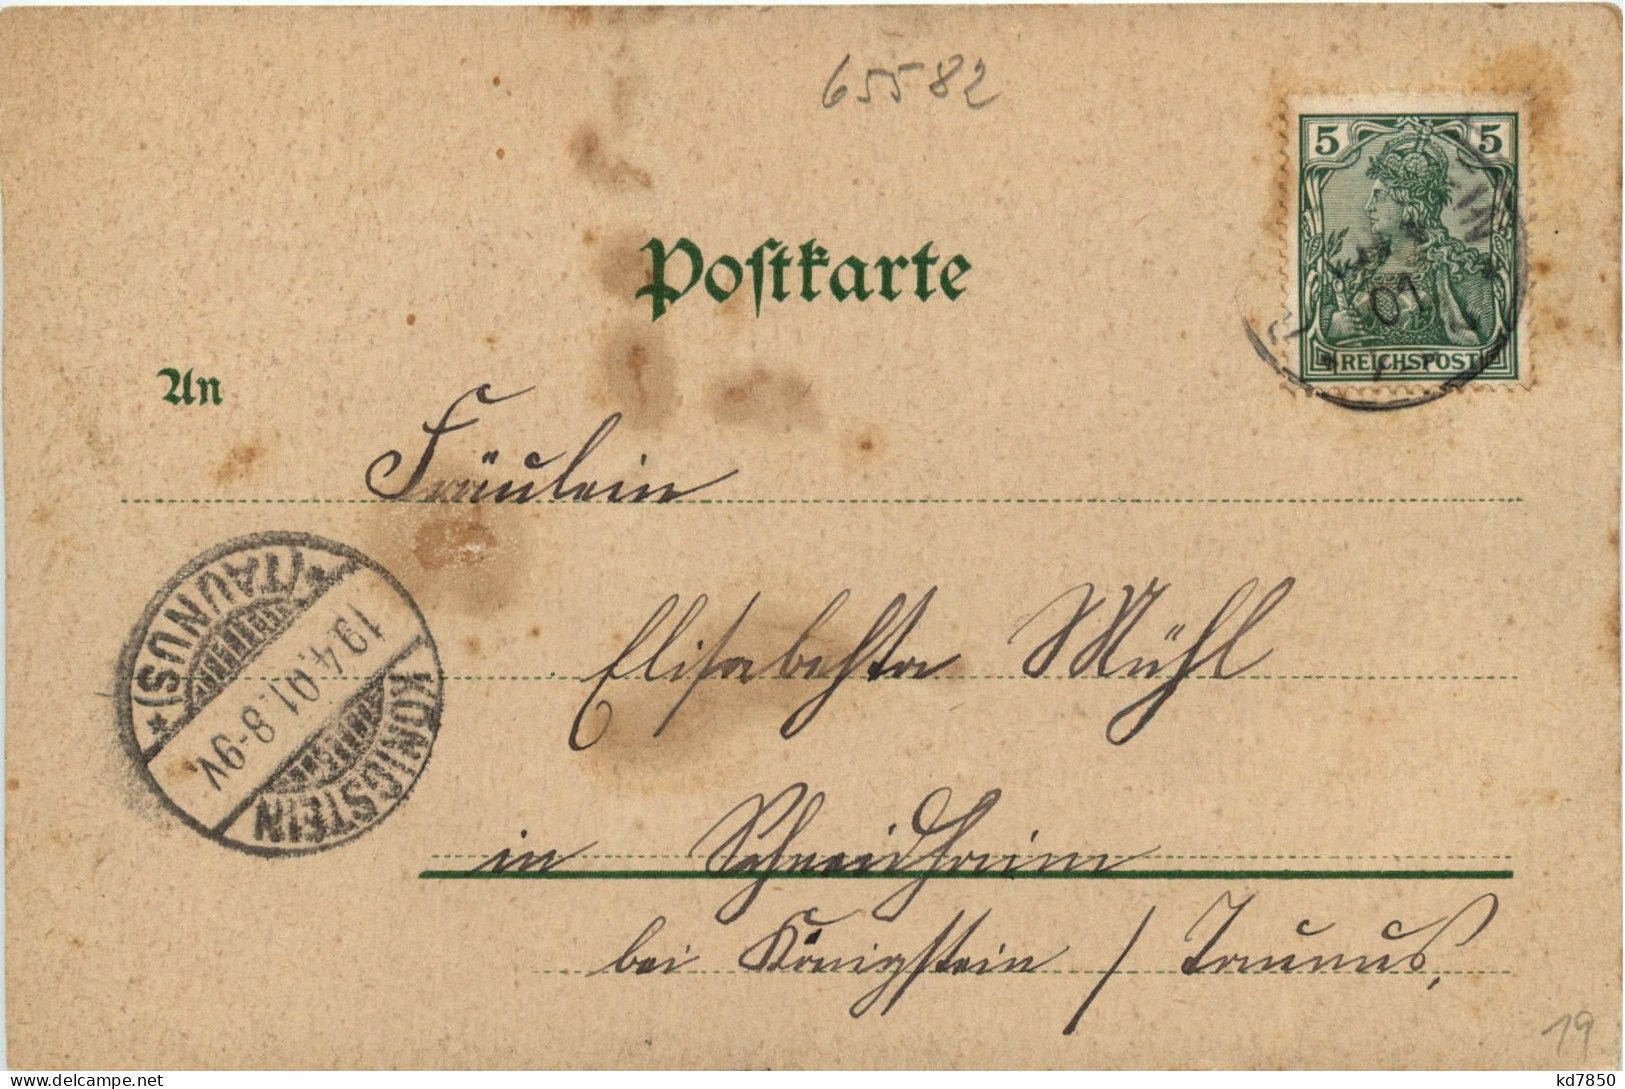 65582
5 5
REICHSPOST
01
Postkarte
An
Fräulein
Elisabehta Mühl
in Schneidhaim
bei Königstein / Taunus.
KÖNIGSTEIN
(TAUNUS)
19.4.01.8-9V.
19
kd7850